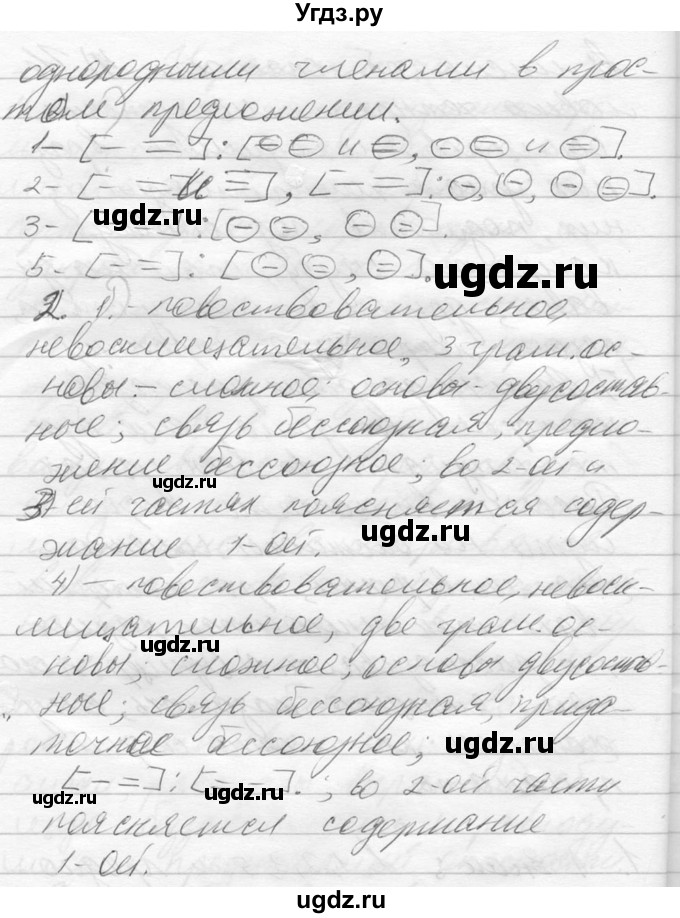 Угдз.ру
однородными членами в прос-
том предложении.
1- [- =] : [⊖ ⊜ и ⊜, ⊖ ⊜ и ⊜].
2- [- = и =], [- =] : ⊖, ⊖, ⊖ ⊜].
ugdz.ru
3- [- =] : [⊖ ⊜, ⊖ ⊜].
ugdz.ru
5- [- =] : [⊖ ⊜, ⊜].
2. 1). - повествовательное,
невосклицательное, 3 грам. ос-
новы - сложное; основы - двусостав-
ные; связь бессоюзная, предло-
жение бессоюзное; во 2-ой и
ugdz.ru
3-ей частях поясняется содер-
ugdz.ru
жание 1-ой.
4) - повествовательное, невоск-
лицательное, две грам. ос-
ugdz.ru
новы; сложное; основы двусоста-
ные; связь бессоюзная, прида-
точное бессоюзное;
ugdz.ru
[- =] : [- =]. ; во 2-ой части
ugdz.ru
ugdz.ru
поясняется содержание
ugdz.ru
1-ой.
ugdz.ru